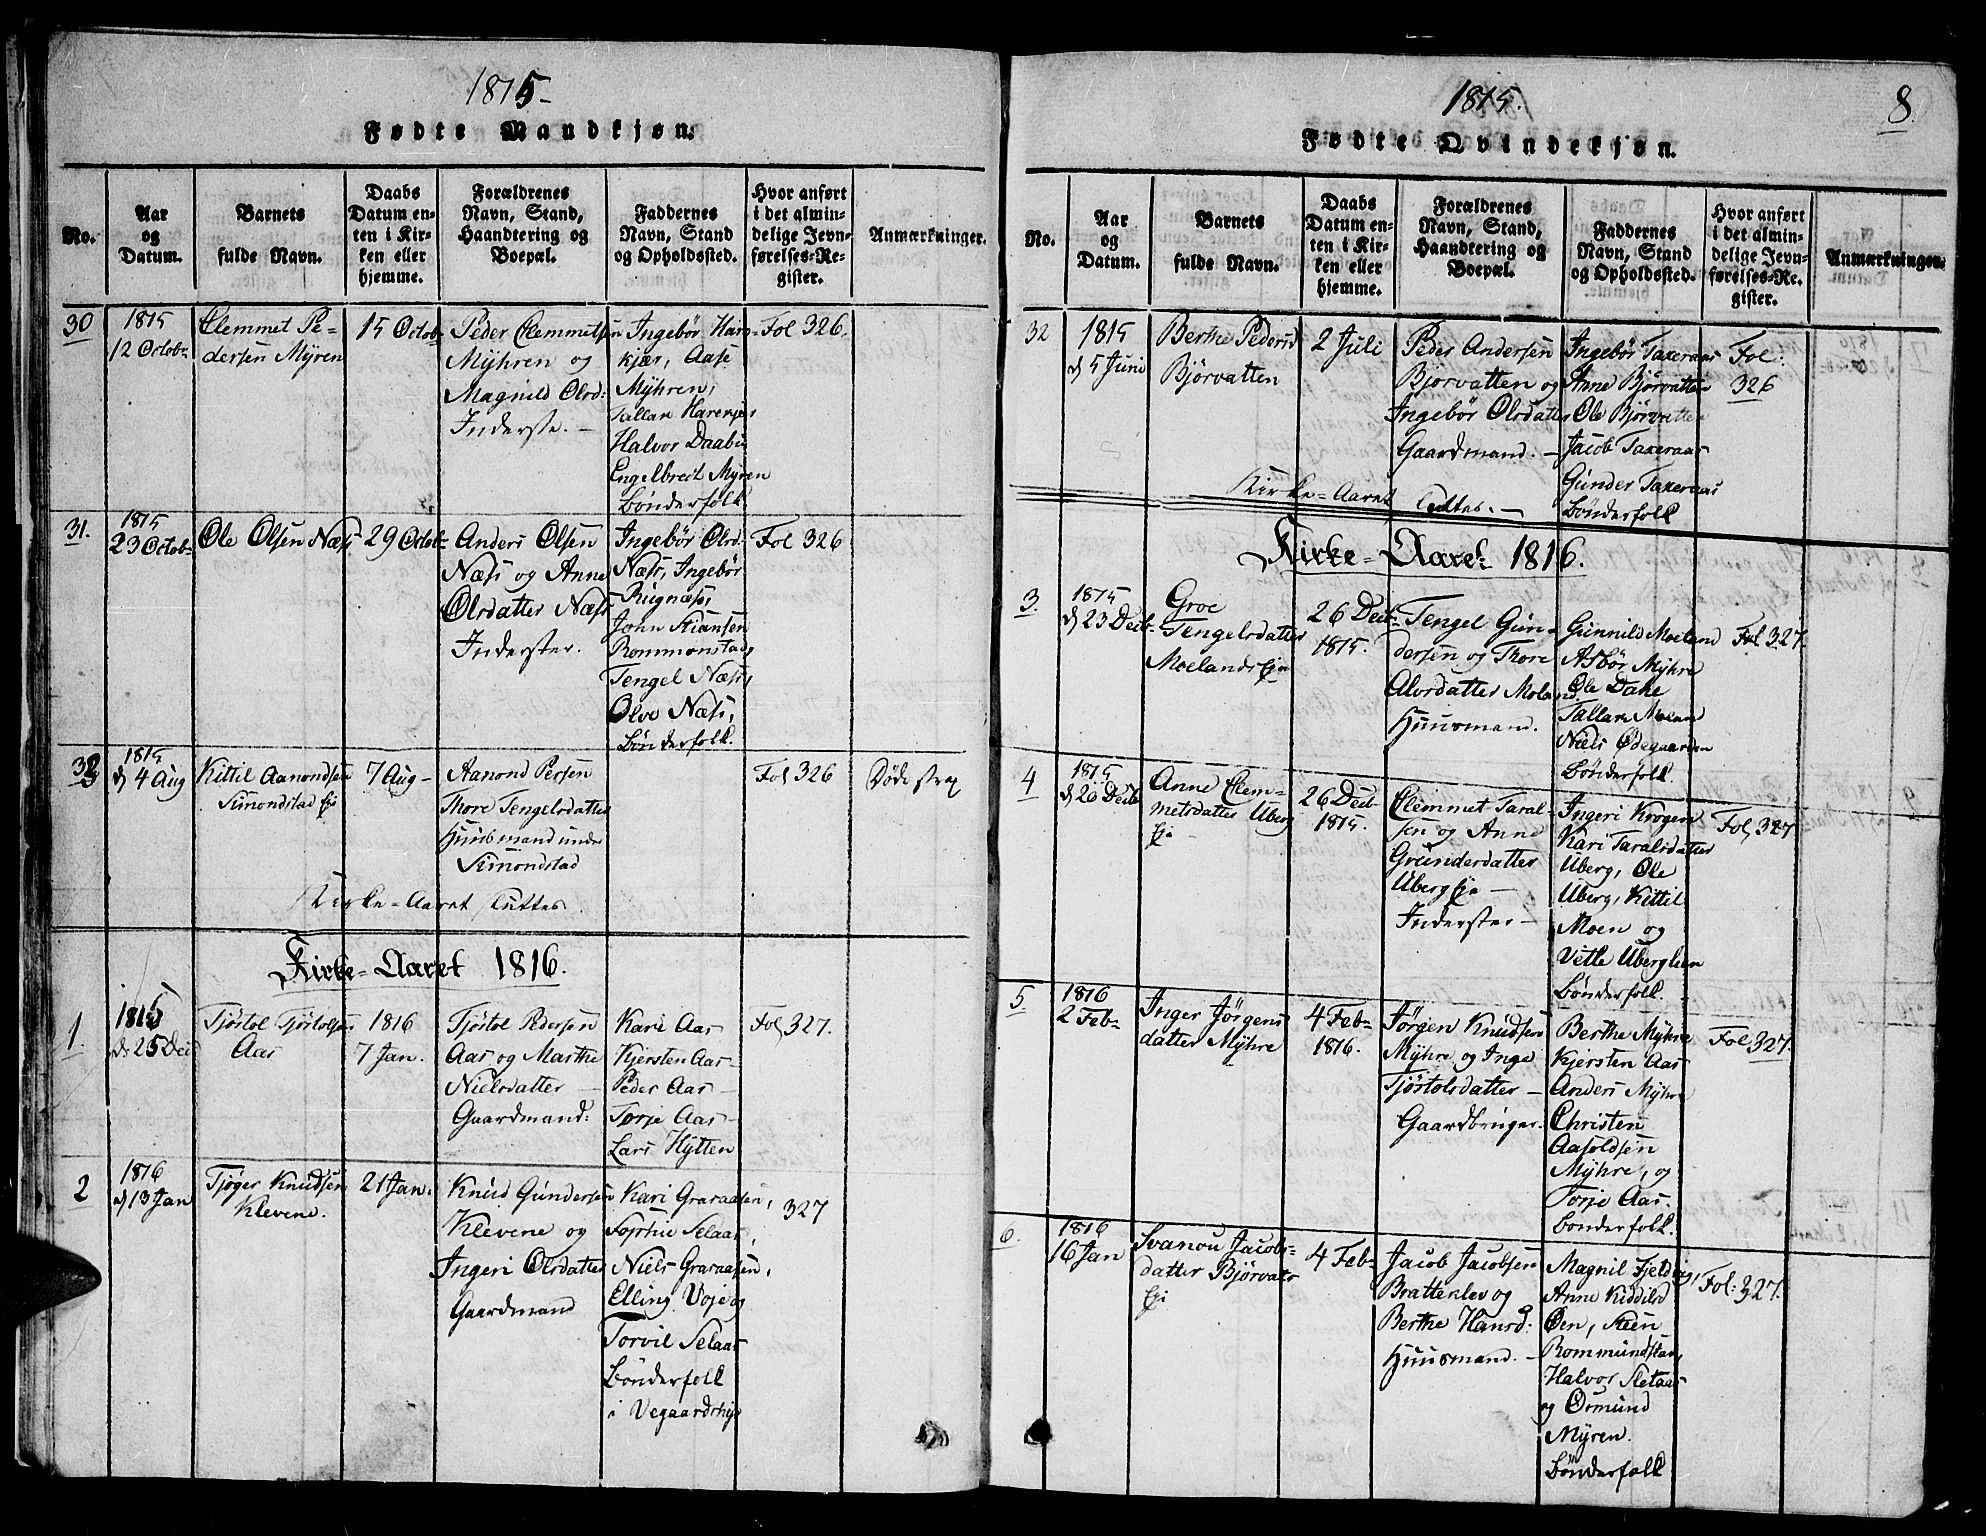 1815
Fødte Mandkjøn.
No.
Aar
og
Datum.
Barnets
fulde Navn.
Daabs
Datum en-
ten i Kir-
ken eller
hjemme.
Forældrenes
Navn, Stand,
Haandtering og
Boepæl.
Faddernes
Navn, Stand
og Opholdssted.
Hvor anført
i det almin-
delige Jevn-
førelses-Re-
gister.
Anmærkninger.
30
1815
12 Octob-
Clemmet Pe-
dersen Myren
15 Octob-
Peder Clemmetsen
Myhren og
Magnild Olsd:
Inderste. -
Ingebor
kjær, Aase
Myhren,
Tallak
Halvor Daabu
Engelbredt Myren
Bønderfolk
Fol 326.
31.
1815
23 Octob-
Ole Olsen Næss
29 Octob-
Anders Olsen
Næss og Anne
Olsdatter Næss
Inderster.
Ingebor Olsd:
Næss, Ingebor
Rugnæss,
John Stiansen
Rommonstad,
Tengel Næss,
Olve Næss,
Bønderfolk.
Fol 326
32
1815
d 4 Aug
Kittil Aanondsen
Simondstad Eje
7 Aug-
Aanond Persen
Thore Tengelsdatter
Huusmand under
Simondstad
Fol 326
Døde strax
Kirke-Aaret sluttes
Kirke-Aaret 1816.
1.
1815
d. 25 Dec
Tjøstol Tjøstolsen
Aas
1816
7 Jan.
Tjøstol Pedersen
Aas og Marthe
Nielsdatter -
Gaardmand:
Kari Aas
Kjersten Aas-
Peder Aas-
Torje Aas-
Lars Hytten
Fol 327.
2
1816
d 13 Jan
Tjøger Knudsen
Klevene.
21 Jan.
Knud Gundersen
Klevene og
Ingeri Olsdatter
Gaardmand
Kari Graraasen,
Sophie Selaas,
Niels Graraasen,
Elling Voje og
Torvil Selaas
Bønderfolk
i Vegaardshej
327
1815.
8
Fødte Qvindekjøn.
No.
Aar
og
Datum.
Barnets
fulde Navn.
Daabs
Datum en-
ten i Kir-
ken eller
hjemme.
Forældrenes
Navn, Stand,
Haandtering og
Boepæl.
Faddernes
Navn, Stand
og Opholdssted.
Hvor anført
i det almin-
delige Jevn-
førelses-Re-
gister.
Anmærkninger.
32
1815
d 5 Juni
Berthe Pedersd
Bjørvatten
2 Juli
Peder Andersen
Bjorvatten og
Ingebør Olsdatter
Gaardmand. -
Ingebør Taxeraas
Anne Bjørvatten
Ole Bjørvatten
Jacob Taxeraas
Gunder Taxeraas
Bønderfolk
Fol:
326
Kirke-Aaret sluttes. -
Kirke-Aaret 1816.
3.
1815
d 23 Decb-
Groe
Tengelsdatter
Moelands Eje
26 Decb-
1815.
Tengel Gun-
dersen og Thore
Alvsdatter Moland
Huusmand.
Gunnild Moeland
Asbør Myhre
Ole Dake
Tallak Moland
Niels Ødegaarden
Bønderfolk.
Fol 327.
4
1815
d 26 Decb
Anne Clem-
metsdatter Uberg
Eje -
26 Decb
1815.
Clemmet Taral-
sen og Anne
Gundersdatter
Uberg Eje -
Inderster -
Ingeri Krogen
Kari Taralsdatter
Uberg, Ole
Uberg, Kittil
Moen og
Vetle Uberglien
Bønderfolk.
Fol 327
5
1816
2 Feb-
Inger Jørgens
datter Myhre
4 Feb-
1816.
Jørgen Knudsen
Myhre og Inge
Tjøstolsdatter -
Gaardbruger.
Berthe Myhre
Kjersten Aas
Anders Myhre
Christen
Aasoldsen
Myhre, og
Torje Aas.
Bonderfolk
Fol 327.
6.
1816
16 Jan
Svanou Jacobs-
datter Bjørvats
Eje
4 Feb-
Jacob Jacobsen
Bratteklev og
Berthe Hansd:
Huusmand. -
Magnil Fjeldvig,
Anne Kiddilsd
Øen, Steen
Rommundstad,
Halvor Sletaas
og Ormund
Myren.
Bønderfolk
Fol: 327.